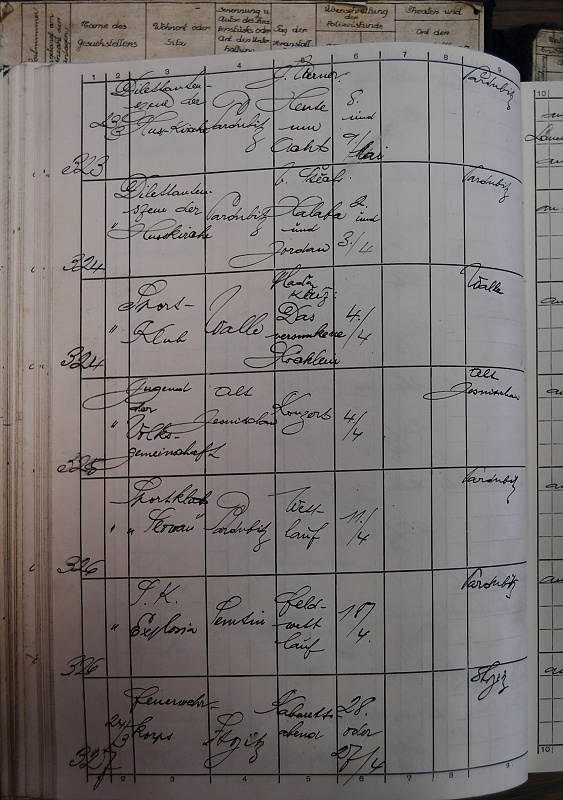 Name des
Gesuchstellers
Wohnort oder
Sitz
Benennung u.
Autor des Thea
terstückes oder
Art der Unter
haltung
Tag der
Veranstalt.
Überschreitung
der
Polizeistunde
Theater und
Ort der
1 2 3 4 5 6 7 8 9
10
323
23/3
Dilettanten-
szene der
Hus-Kirche
Pardubitz
J. Werner:
Heute
um
Acht
8.
und
9/Mai
Pardubitz
324
"
Dilettanten
szene der
Husskirche
Pardubitz
Halaba
und
Jordan
2.
und
3./4
Pardubitz
324
"
Sport-
Klub
Walle
Das
versunkene
4./4
Walle
325
"
Jugend
der
Volks-
gemeinschaft
Alt
Jesnitschan
Konzert
4/4
Alt
Jesnitschan
326
"
Sportklub
"Slovan"
Pardubitz
Wett-
lauf
11./4
Pardubitz
326
"
S. K.
Explosia
Semtin
Feld-
wett
lauf
18/4.
Pardubitz
327
24/3
Feuerwehr-
korps
Kabarett-
abend
28.
oder
27/4
1 2 3 4 5 6 7 8 9
10